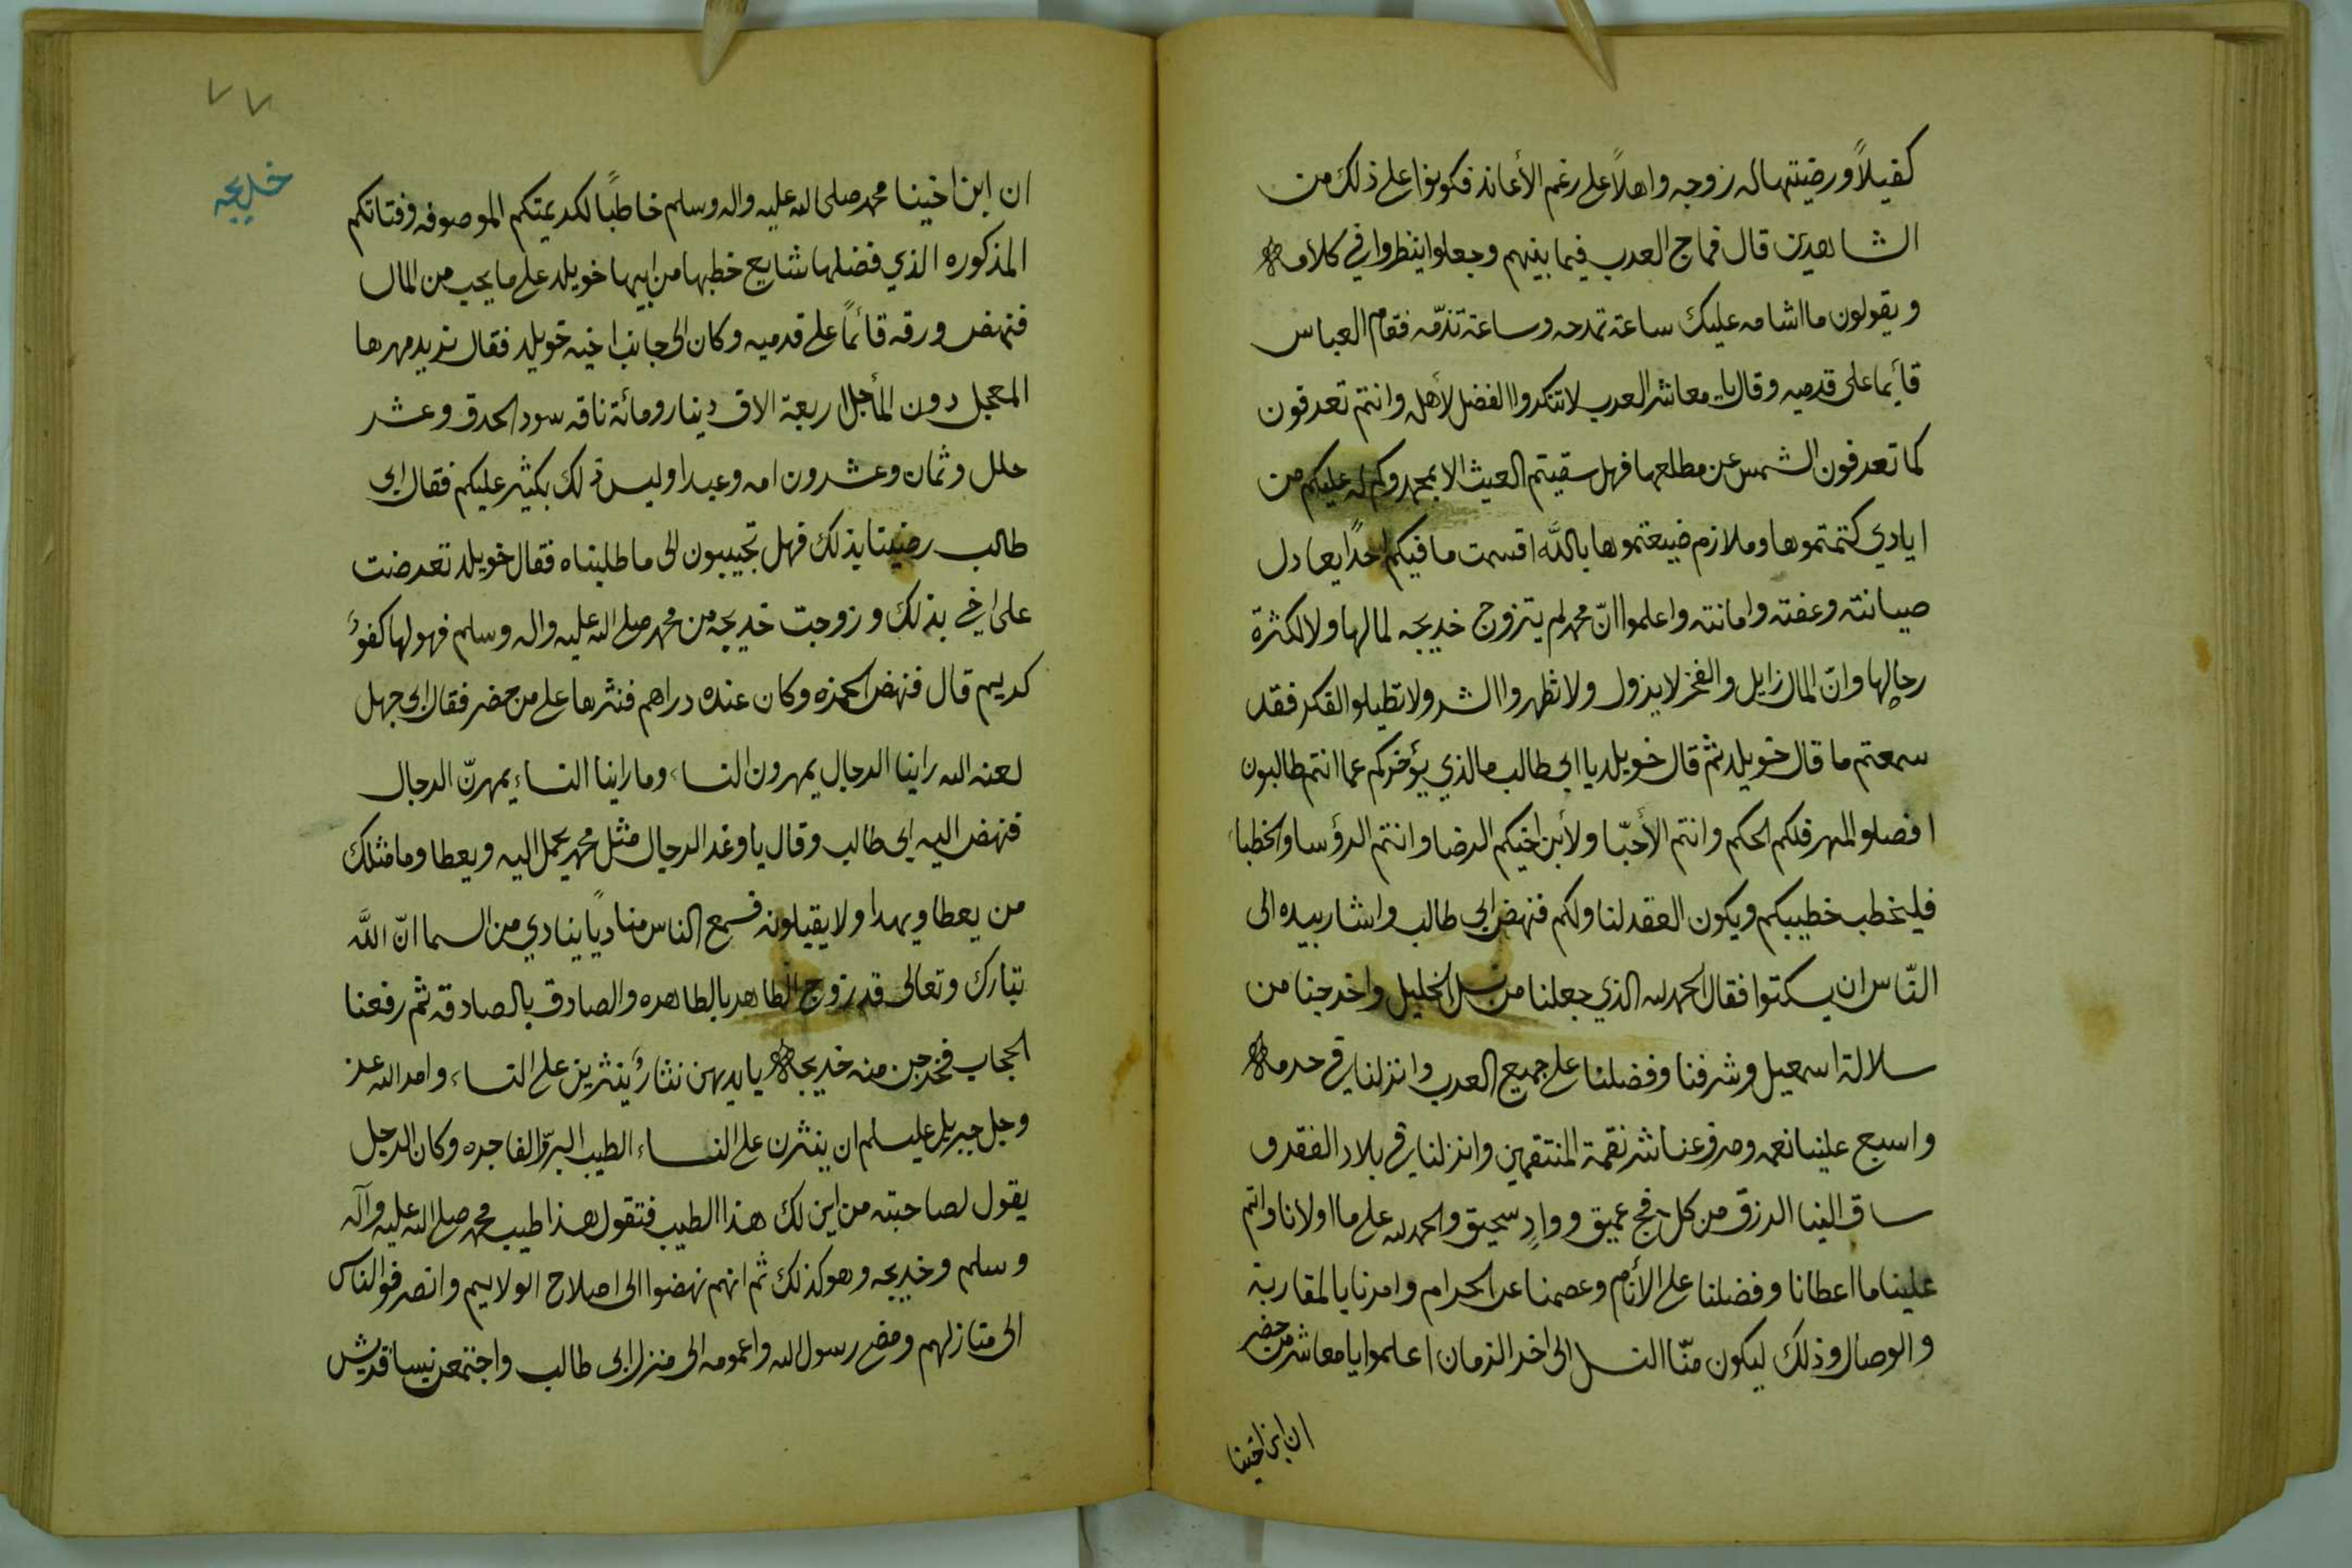 كفيلاً ورضيتها له زوجه واهلاً على رغم الأعاند فكونوا على ذلك من
الشاهدين قال فماج العرب فيما بينهم وجعلوا ينظروا في كلامه
ويقولون ما اشامه عليك ساعة تمدحه وساعة تذمّه فقام العباس
قأيما على قدميه وقال يا معاشر العرب لا تنكروا الفضل لأهله وانتم تعرفون
كما تعرفون الشمس عن مطلعها فهل سقيتم الغيث الا بمحمد وكم له عليكم من
ايادي كتمتموها وملازم ضيعتموها بالله اقسمت ما فيكم احدًا يعادل
صيانته وعفته وامانته واعلموا انّ محمد لم يتزوج خديجه لمالها ولا لكثرة
رجالها وانّ المال زايل والفخر لا يزول ولا تظهروا الشر ولا تطيلوا الفكر فقد
سمعتم ما قال خويلد ثم قال خويلد يا ابي طالب ما الذي يؤخركم عما انتم طالبون
افصلو المهر فلكم الحكم وانتم الأحبّا ولأبن اخيكم الرضا وانتم الرؤسا والخطباء
فليخطب خطيبكم ويكون العقد لنا ولكم فنهض ابي طالب واشار بيده الى
النّاس ان يسكتوا فقال الحمد لله الذي جعلنا من نسل الخليل واخرجنا من
سلالة اسمعيل وشرفنا وفضلنا على جميع العرب وانزلنا في حرمه
واسبع علينا نعمه وصرف عنا شر نقمة المنتقمين وانزلنا في بلاد الفقر و
ساق الينا الرزق من كل فج عميق ووادٍ سحيق والحمد لله على ما اولانا واتم
علينا ما اعطانا وفضلنا على الأنام وعصمنا عن الحرام وامرنا بالمقاربة
والوصال وذلك ليكون منّا النسل الى اخر الزمان اعلموا يا معاشر من حضر
ان ابن اخينا
٧٧
خديجه
ان ابن اخينا محمد صلى الله عليه واله وسلم خاطبًا لكريمتكم الموصوفه وفتاتكم
المذكوره الذي فضلها شايع خطبها من ابيها خويلد على ما يحب من المال
فنهض ورقه قائمًا على قدميه وكان الى جانب اخيه خويلد فقال نريد مهرها
المعجل دون المأجل اربعة الاف دينار ومائة ناقه سود الحدق وعشر
حلل وثمان وعشرون امه وعبدا وليس ذلك بكثير عليكم فقال ابي
طالب رضينا بذلك فهل تجيبون الى ما طلبناه فقال خويلد تعرضت
على اخي بذلك وزوجت خديجه من محمد صلى الله عليه واله وسلم فهو لها كفؤ
كريم قال فنهض الحمزه وكان عنده دراهم فنثرها على من حضر فقال ابي جهل
لعنه الله راينا الرجال يمهرون النساء وما راينا النساء يمهرنّ الرجال
فنهض اليه ابي طالب وقال يا وغد الرجال مثل محمد يحمل اليه ويعطا وما مثلك
من يعطا ويهدا ولا يقبلونه فسمع الناس مناديًا ينادي من السما انّ اللَّه
تبارك وتعالى قد زوج الطاهر بالطاهره والصادق بالصادقه ثم رفعنا
الحجاب فخرجن منه خديجه بايديهن نثارًا ينثرين على النساء وامر الله عز
وجل جبريل عليسلم ان ينثرن على النساء الطيب البرّ والفاجره وكان الرجل
يقول لصاحبته من اين لك هذا الطيب فتقول هذا طيب محمد صلى الله عليه وآله
وسلم وخديجه وهو كذلك ثم انهم نهضوا الى اصلاح الولايم وانصرفوا الناس
الى منازلهم ومضى رسول الله واعمومه الى منزل ابي طالب واجتمعن نسا قريش